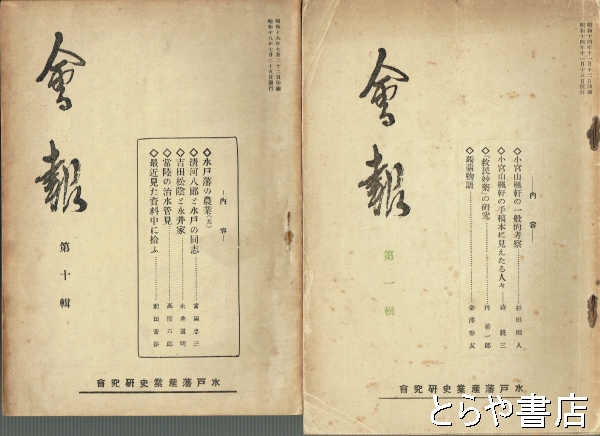 昭和十八年七月二十二日印刷
昭和十八年七月二十五日發行
會報
第十輯
―内容―
◇水戸藩の農業(五)
◇清河八郎と水戸の同志
◇吉田松陰と永井家………永井道明
◇常陸の治水管見
◇最近見た資料中に拾ふ………前田香徑
水戸藩産業史研究會
昭和十四年十一月十二日印刷
昭和十四年十一月十五日發行
會報
第一輯
―内容―
◇小宮山楓軒の一般的考察………杉田雨人
◇小宮山楓軒の手稿本に見えたる人々………森銑三
◇『救民妙藥』の研究………丹善一郎
◇蒟蒻物語………金澤春友
水戸藩産業史研究會
とらや書店